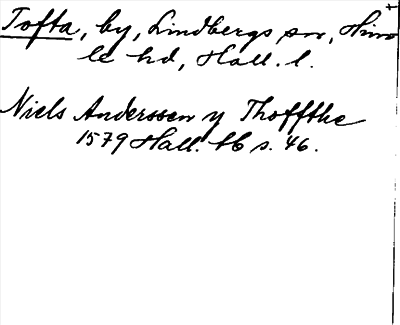 Tofta, by, Lindbergs sn, Him
le hd, Hall. l.
Niels Anderssen y Thoffthe
1579 Hall. tb s. 46.